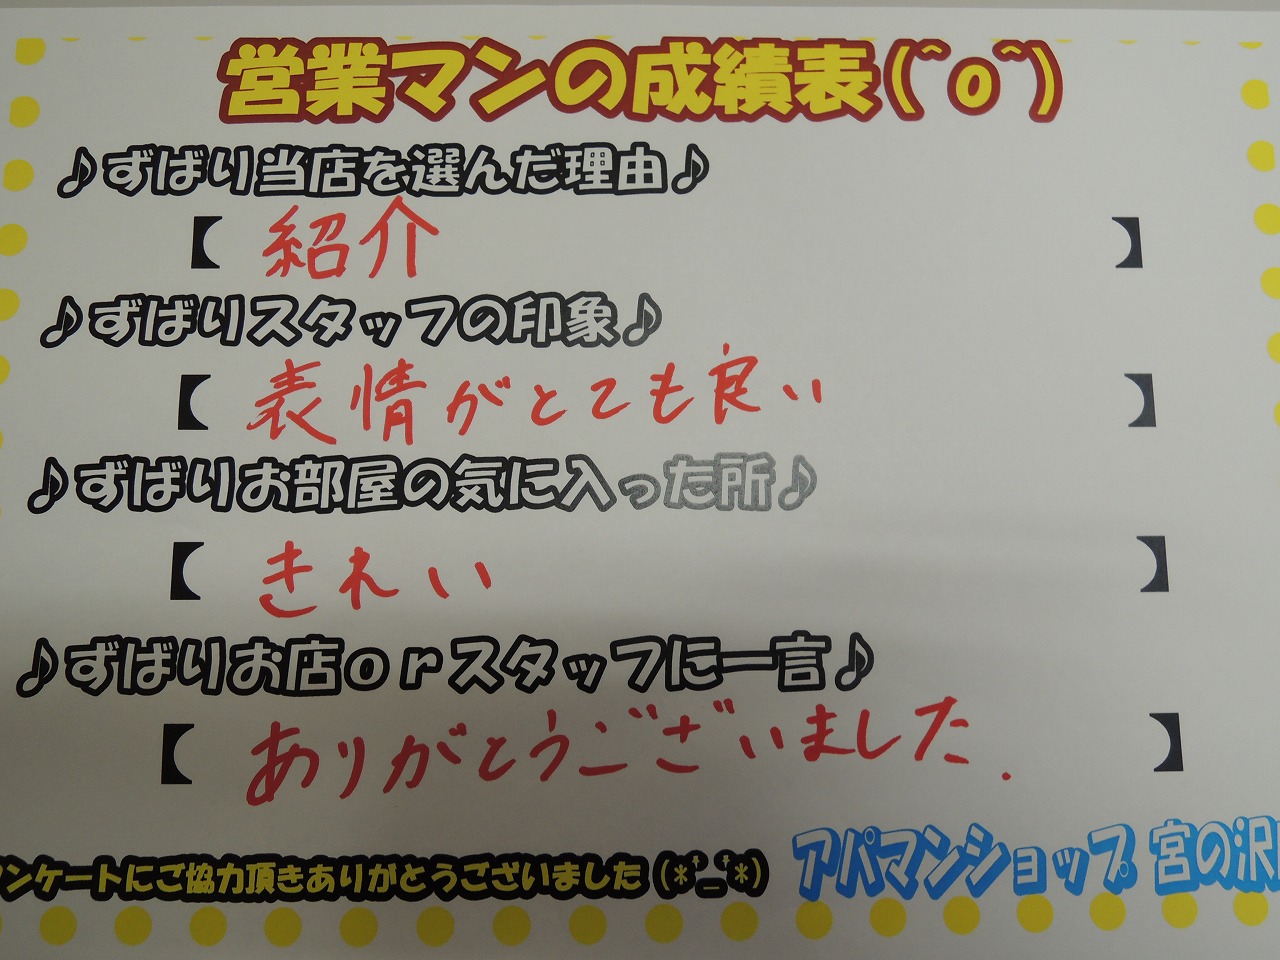 営業マンの成績表(^o^)
♪ずばり当店を選んだ理由♪
【 紹介 】
♪ずばりスタッフの印象♪
【 表情がとても良い 】
♪ずばりお部屋の気に入った所♪
【 きれい 】
♪ずばりお店orスタッフに一言♪
【 ありがとうございました. 】
ンケートにご協力頂きありがとうございました(*'_'*)
アパマンショップ 宮の沢